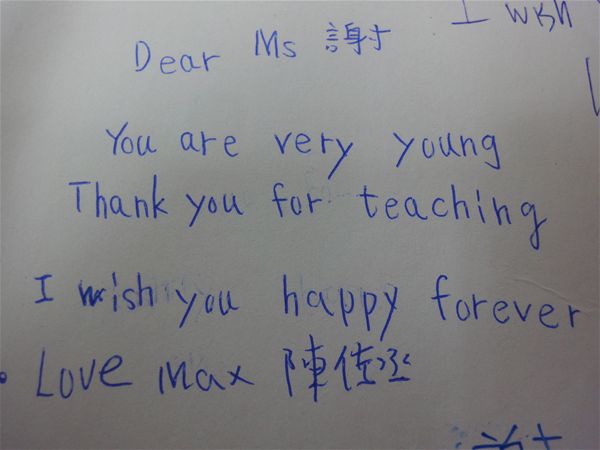 Dear Ms 謝
I wish
You are very young
Thank you for teaching
I wish you happy forever
Love Max 陳佳丞